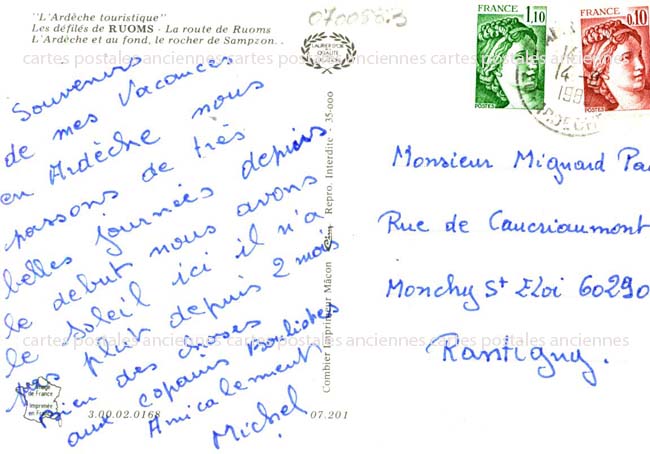 "L'Ardèche touristique"
Les défilés de RUOMS - La route de Ruoms
L'Ardèche et au fond, le rocher de Sampzon.
0700583
LAURIER D'OR
DE LA
QUALITÉ
FRANCE
1,10
POSTES
FRANCE
0,10
POSTES
14
ARDECHE
cartes postales anciennes cartes postales anciennes cartes postales anciennes
Souvenirs
de mes Vacances
en Ardèche nous
passons de très
belles journées depuis
le début nous avons
le soleil ici il n'a
pas plut depuis 2 mois
Bien des choses
aux copains
Amicalement
Michel
Monsieur Mignard
Rue de Caucriaumont
Monchy St Eloi 60290
Rantigny.
Combier Imprimeur Mâcon Cim Repro. Interdite - 35-000
Image
de France
Imprimée
en France
3.00.02.0168
07.201
cartes postales anciennes cartes postales anciennes cartes postales anciennes